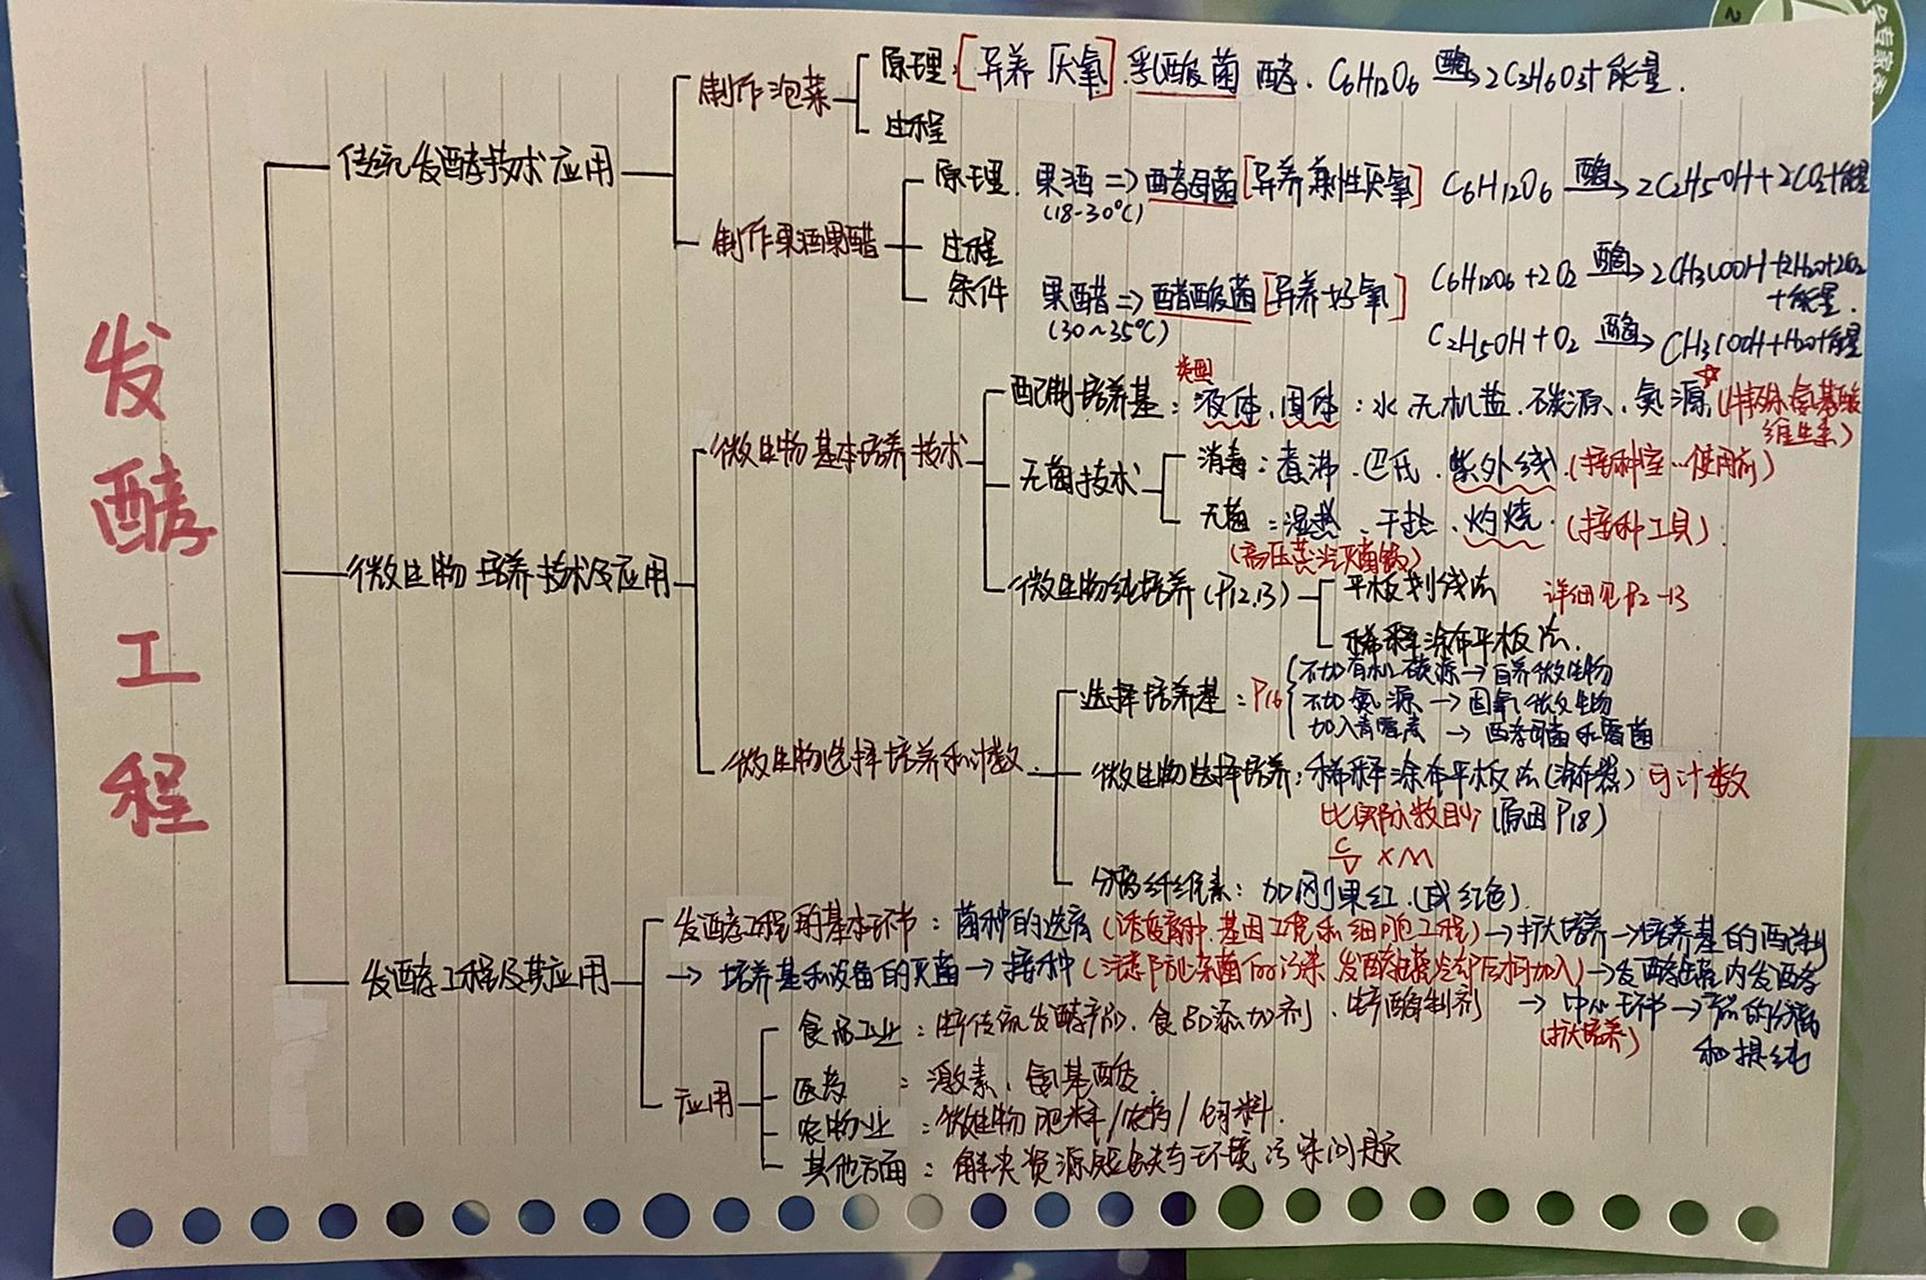 发酵工程
传统发酵技术应用
制作泡菜
原理：[异养 厌氧]. 乳酸菌 酵. C6H12O6 酶→ 2C3H6O3+能量.
过程
制作果酒果醋
原理. 果酒 => 酵母菌 [异养 兼性厌氧] C6H12O6 酶→ 2C2H5OH+2CO2+能量
(18-30°C)
过程
条件 果醋 => 醋酸菌 [异养 好氧] C6H12O6+2O2 酶→ 2CH3COOH+2H2O+2CO2
+能量.
(30~35°C)
C2H5OH+O2 酶→ CH3COOH+H2O+能量
微生物培养技术及应用
微生物基本培养技术
类型
配制培养基：液体、固体：水 无机盐. 碳源、氮源 ☆(特殊氨基酸
维生素)
无菌技术
消毒：煮沸. 巴氏. 紫外线. (接种室…使用前)
无菌：湿热、干热、灼烧. (接种工具)
(高压蒸汽灭菌锅)
微生物纯培养 (P12.13)
平板划线法 详细见P12-13
稀释涂布平板法.
微生物选择培养和计数.
选择培养基：P16 { 不加有机碳源→自养微生物
不加氮源→固氮微生物
加入青霉素→酵母菌和霉菌
微生物选择培养：稀释涂布平板法(涂布器) 可计数
比实际数目少 (原因P18)
C/V ×M
分离纤维素：加刚果红. (成红色).
发酵工程及其应用
发酵工程的基本环节：菌种的选育 (诱变育种. 基因工程和细胞工程)→扩大培养→培养基的配制
→ 培养基和设备的灭菌→接种 (注意防止杂菌的污染 发酵罐冷却后再加入)→发酵罐内发酵
→中心环节→产品的分离
(扩大培养) 和提纯
应用
食品工业：生产传统发酵产品、食品添加剂、生产酶制剂
医药：激素、氨基酸
农牧业：微生物肥料/农药/饲料.
其他方面：解决资源短缺与环境污染问题